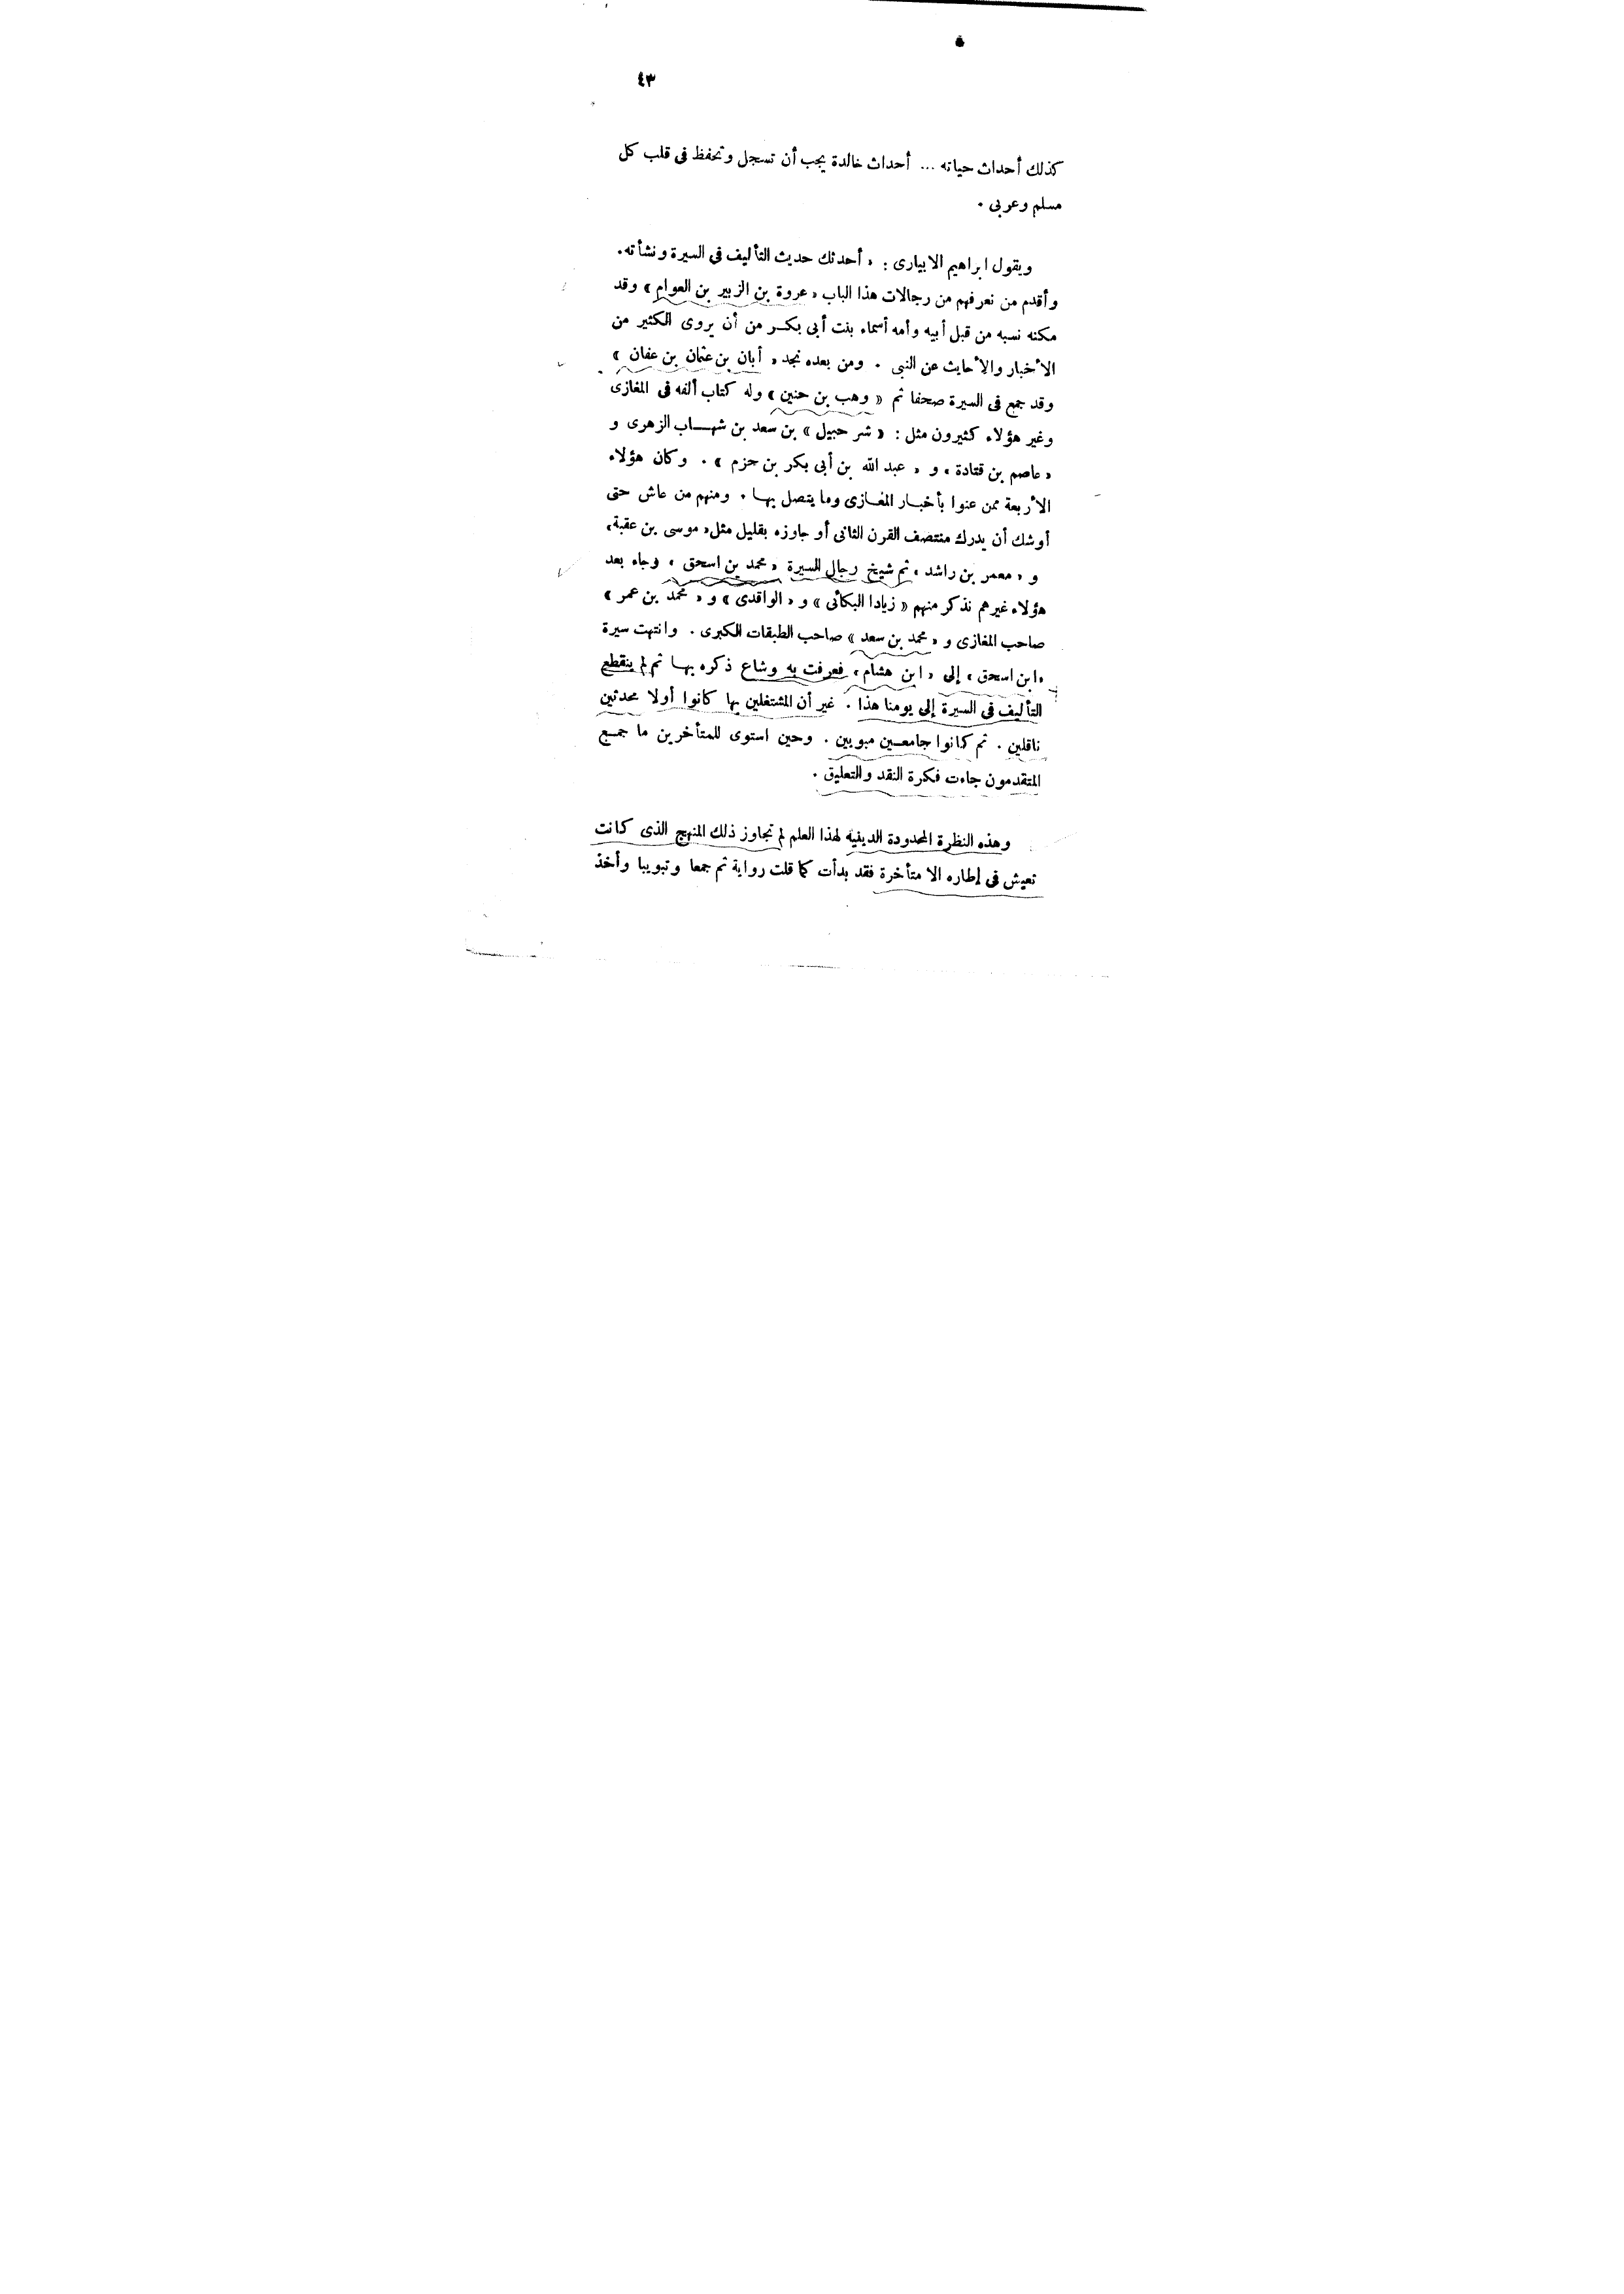 ٤٣
كذلك أحداث حياته ... أحداث خالدة يجب أن تسجل وتحفظ فى قلب كل
مسلم وعربى .
ويقول ابراهيم الابيارى : « أحدثك حديث التأليف فى السيرة ونشأته .
وأقدم من نعرفهم من رجالات هذا الباب « عروة بن الزبير بن العوام » وقد
مكنه نسبه من قبل أبيه وأمه أسماء بنت أبى بكر من أن يروى الكثير من
الأخبار والأحايث عن النبى . ومن بعده نجد « أبان بن عثمان بن عفان »
وقد جمع فى السيرة صحفا ثم « وهب بن حنين » وله كتاب ألفه فى المغازى
وغير هؤلاء كثيرون مثل : « شر حبيل » بن سعد بن شهاب الزهرى و
« عاصم بن قتادة » و « عبد الله بن أبى بكر بن حزم » . وكان هؤلاء
الأربعة ممن عنوا بأخبار المغازى وما يتصل بها . ومنهم من عاش حتى
أوشك أن يدرك منتصف القرن الثانى أو جاوزه بقليل مثل « موسى بن عقبة »
و « معمر بن راشد » ثم شيخ رجال السيرة « محمد بن اسحق » وجاء بعد
هؤلاء غيرهم نذكر منهم « زيادا البكائى » و « الواقدى » و « محمد بن عمر »
صاحب المغازى و « محمد بن سعد » صاحب الطبقات الكبرى . وانتهت سيرة
« ابن اسحق » إلى « ابن هشام » فعرفت به وشاع ذكره بها ثم لم ينقطع
التأليف فى السيرة إلى يومنا هذا . غير أن المشتغلين بها كانوا أولا محدثين
ناقلين . ثم كانوا جامعين مبوبين . وحين استوى للمتأخرين ما جمع
المتقدمون جاءت فكرة النقد والتعليق .
وهذه النظرة المحدودة الدينية لهذا العلم لم تجاوز ذلك المنهج الذى كانت
تعيش فى إطاره الا متأخرة فقد بدأت كما قلت رواية ثم جمعا وتبويبا وأخذ